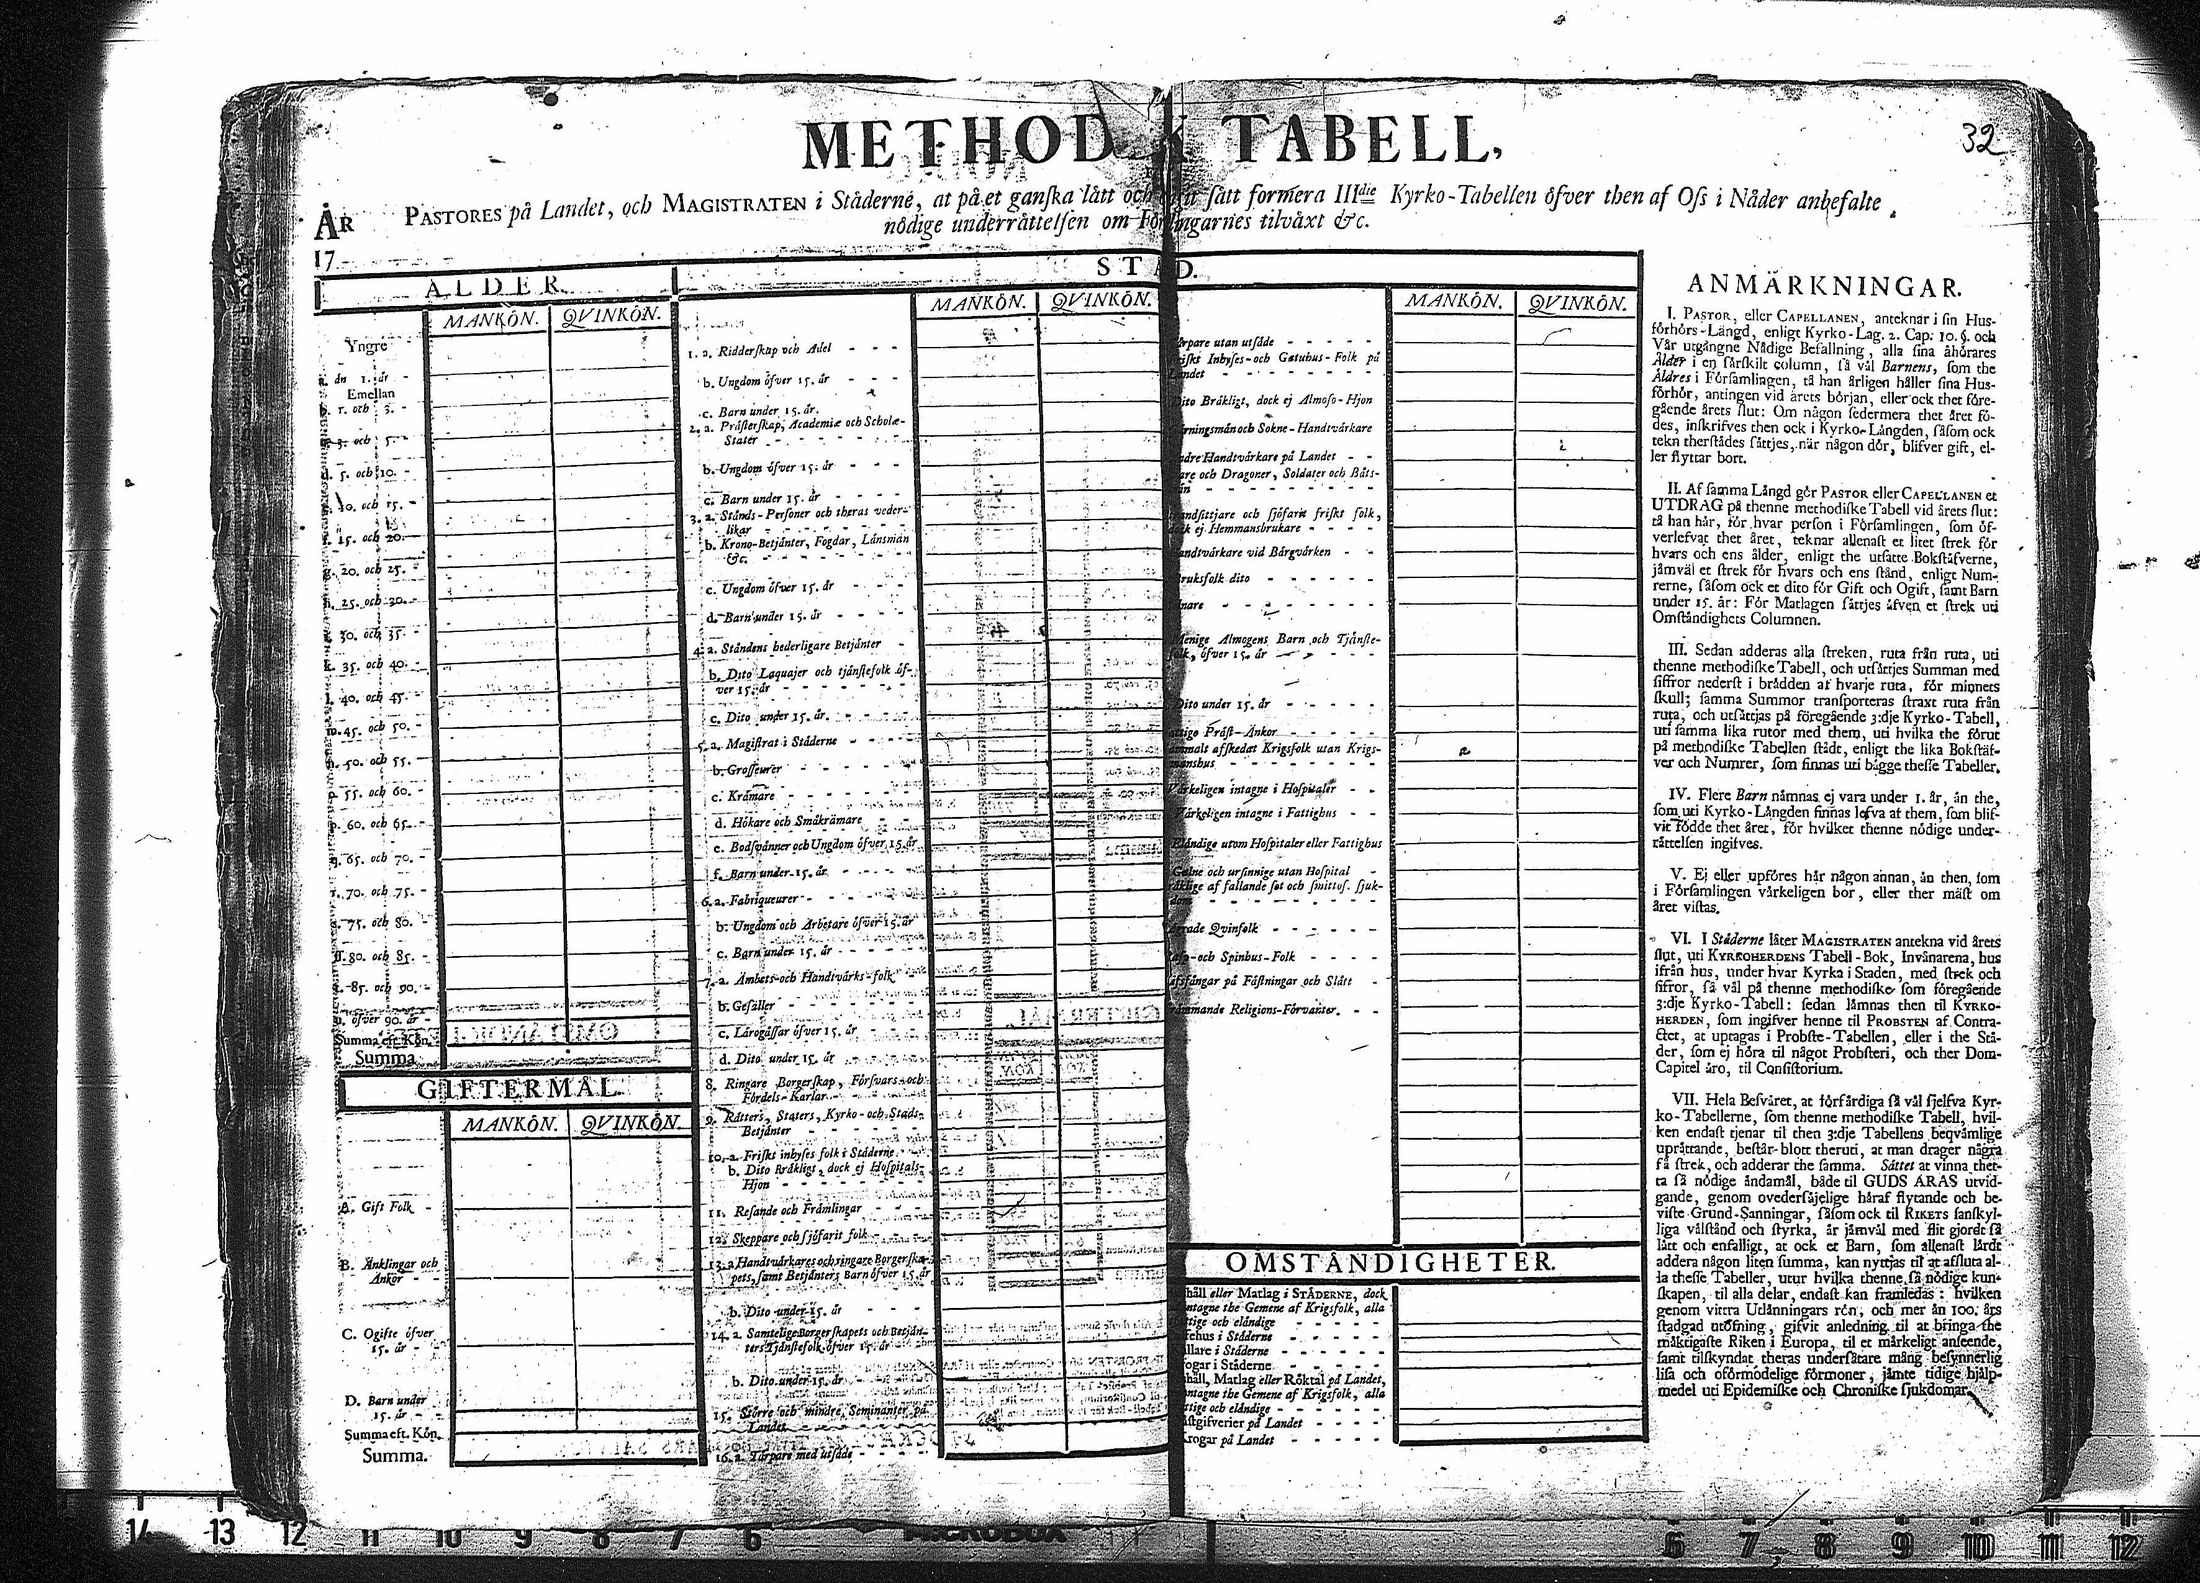 METHOD TABELL,
32
ÅR PASTORES på Landet, och MAGISTRATEN i Ståderne, at på et ganſka lått och ſått formera IIIdie Kyrko-Tabellen ôfver then af Oſs i Nåder anbefalte
nôdige underråttelſen om tilvåxt &c.
17
ALDER.
MANKÔN. QVINKÔN.
Yngre
a. ån 1. år -
Emellan
b. 1. och 3. -
3. och 5. -
d. 5. och 10. -
10. och 15. -
15. och 20.
g. 20. och 25. -
h. 25. och 30. -
30. och 35. -
k. 35. och 40. -
l. 40. och 45. -
m. 45. och 50. -
n. 50. och 55. -
55. och 60. -
p. 60. och 65. -
q. 65. och 70. -
r. 70. och 75. -
75. och 80. -
80. och 85. -
85. och 90. -
u. ôfver 90. år -
Summa eft. Kôn.
Summa
GIFTERMÅL.
MANKÔN. QVINKÔN.
A. Gift Folk -
B. Ånklingar och
Ånkor - -
C. Ogifte ôfver
15. år - -
D. Barn under
15. år - -
Summa eft. Kôn.
Summa.
STÅD.
MANKÔN. QVINKÔN.
1. a. Ridderſkap och Adel - - -
b. Ungdom ôfver 15. år - - -
c. Barn under 15. år.
2. a. Pråſterſkap, Academiæ och Scholæ-
Stater - - - - - -
b. Ungdom ôfver 15. år - - -
c. Barn under 15. år - - - -
3. a. Stånds-Perſoner och theras veder-
likar - - - - - -
b. Krono-Betjånter, Fogdar, Lånsmån
&c. - - - - - -
c. Ungdom ôfver 15. år - - -
d. Barn under 15. år - - -
4. a. Ståndens hederligare Betjånter -
b. Dito Laquajer och tjånſtefolk ôf-
ver 15. år - - - - - -
c. Dito under 15. år. - - - -
5. a. Magiſtrat i Ståderne - - - -
b. Groſſeurer - - - - - -
c. Kråmare - - - - - -
d. Hôkare och Småkråmare - -
e. Bodſvånner och Ungdom ôfver 15. år
f. Barn under 15. år - - - -
6. a. Fabriqueurer - - - - -
b. Ungdom och Arbetare ôfver 15. år
c. Barn under 15. år - - - -
7. a. Åmbets-och Handtvårks-folk -
b. Geſåller - - - - - -
c. Lårogåſſar ôfver 15. år - - -
d. Dito under 15. år - - - -
8. Ringare Borgerſkap, Fôrſvars-och
Fôrdels-Karlar - - - - -
9. Råtters, Staters, Kyrko-och Stads-
Betjånter - - - - - -
10. a. Friſkt inhyſes folk i Ståderne. - -
b. Dito Bråkligt, dock ej Hoſpitals-
Hjon - - - - - - -
11. Reſande och Fråmlingar - - -
12. Skeppare och ſjôfarit folk - - -
13. a. Handtvårkares och ringare Borgerſka-
pets, ſamt Betjånters Barn ôfver 15. år
b. Dito under 15. år - - -
14. a. Samtelige Borgerſkapets och Betjån-
ters Tjånſtefolk ôfver 15. år
b. Dito under 15. år - - -
15. Stôrre och mindre Seminanter på
Landet - - - - -
16. a. Torpare med utſåde - - - -
MANKÔN. QVINKÔN.
utan utſåde - - - - -
Inhyſes-och Gatuhus-Folk på
- - - - - - -
Bråkligt, dock ej Almoſo-Hjon
och Sokne-Handtvårkare
Handtvårkare på Landet - -
och Dragoner, Soldater och Båts-
- - - - - - -
och ſjôfarit friſkt folk,
ej Hemmansbrukare - - - -
vid Bårgvårken - -
dito - - - - - -
- - - - - -
Almogens Barn och Tjånſte-
ôfver 15. år - - -
Dito under 15. år - - - - -
Pråſt-Ånkor - - - - -
afſkedat Krigsfolk utan Krigs-
- - - - - -
intagne i Hoſpitaler - -
intagne i Fattighus - -
utom Hoſpitaler eller Fattighus
och urſinnige utan Hoſpital -
af fallande ſot och ſmittoſ. ſjuk-
- - - - - - -
Qvinfolk - - - - - -
och Spinhus-Folk - - - -
på Fåſtningar och Slått -
Religions-Fôrvanter. - -
2
OMSTÅNDIGHETER.
eller Matlag i STÅDERNE, dock
the Gemene af Krigsfolk, alla
och elåndige - - - - -
i Ståderne - - - - -
i Ståderne - - - - - -
i Ståderne - - - - -
Matlag eller Rôktal på Landet,
the Gemene af Krigsfolk, alla
och elåndige - - - - -
på Landet - - - -
på Landet - - - - -
ANMÄRKNINGAR.
I. PASTOR, eller CAPELLANEN, anteknar i ſin Hus-
fôrhôrs-Långd, enligt Kyrko-Lag. 2. Cap: 10. §. och
Vår utgångne Nådige Befallning, alla ſina åhôrares
Ålder i en ſårſkilt column, ſå vål Barnens, ſom the
Åldres i Fôrſamlingen, tå han årligen håller ſina Hus-
fôrhôr, antingen vid årets bôrjan, eller ock thet fôre-
gående årets ſlut: Om någon ſedermera thet året fô-
des, inſkrifves then ock i Kyrko-Långden, ſåſom ock
tekn therſtådes ſåttjes, når någon dôr, blifver gift, el-
ler flyttar bort.
II. Af ſamma Långd gôr PASTOR eller CAPELLANEN et
UTDRAG på thenne methodiſke Tabell vid årets ſlut:
tå han hår, fôr hvar perſon i Fôrſamlingen, ſom ôf-
verlefvat thet året, teknar allenaſt et litet ſtrek fôr
hvars och ens ålder, enligt the utſatte Bokſtåfverne,
jåmvål et ſtrek fôr hvars och ens ſtånd, enligt Num-
rerne, ſåſom ock et dito fôr Gift och Ogift, ſamt Barn
under 15. år: Fôr Matlagen ſåttjes åfven et ſtrek uti
Omſtåndighets Columnen.
III. Sedan adderas alla ſtreken, ruta från ruta, uti
thenne methodiſke Tabell, och utſåttjes Summan med
ſiffror nederſt i brådden af hvarje ruta, fôr minnets
ſkull; ſamma Summor tranſporteras ſtraxt ruta från
ruta, och utſåttjas på fôregående 3:dje Kyrko-Tabell,
uti ſamma lika rutor med them, uti hvilka the fôrut
på methodiſke Tabellen ſtådt, enligt the lika Bokſtåf-
ver och Numrer, ſom finnas uti bågge theſſe Tabeller.
IV. Flere Barn nåmnas ej vara under 1. år, ån the,
ſom uti Kyrko-Långden finnas lefva af them, ſom blif-
vit fôdde thet året, fôr hvilket thenne nôdige under-
råttelſen ingifves.
V. Ej eller upfôres hår någon annan, ån then, ſom
i Fôrſamlingen vårkeligen bor, eller ther måſt om
året viſtas.
VI. I Ståderne låter MAGISTRATEN antekna vid årets
ſlut, uti KYRKOHERDENS Tabell-Bok, Invånarena, hus
ifrån hus, under hvar Kyrka i Staden, med ſtrek och
ſiffror, ſå vål på thenne methodiſke ſom fôregående
3:dje Kyrko-Tabell: ſedan låmnas then til KYRKO-
HERDEN, ſom ingifver henne til PROBSTEN af Contra-
ctet, at uptagas i Probſte-Tabellen, eller i the Ståder,
ſom ej hôra til något Probſteri, och ther Dom-
Capitel åro, til Conſiſtorium.
VII. Hela Beſvåret, at fôrfårdiga ſå vål ſjelfva Kyr-
ko-Tabellerne, ſom thenne methodiſke Tabell, hvil-
ken endaſt tjenar til then 3:dje Tabellens beqvåmlige
upråttande, beſtår blott theruti, at man drager några
få ſtrek, och adderar the ſamma. Såttet at vinna thet-
ta ſå nôdige åndamål, både til GUDS ÄRAS utvid-
gande, genom ovederſåjelige håraf flytande och be-
viſte Grund-Sanningar, ſåſom ock til RIKETS ſanſkyl-
liga vålſtånd och ſtyrka, år jåmvål med flit gjordt ſå
lått och enfalligt, at ock et Barn, ſom allenaſt lårdt
addera någon liten ſumma, kan nyttjas til at afſluta al-
la theſſe Tabeller, utur hvilka thenne ſå nôdige kun-
ſkapen, til alla delar, endaſt kan framledas: hvilken
genom vittra Utlånningars rôn, och mer ån 100. års
ſtadgad utôfning, gifvit anledning til at bringa the
måktigaſte Riken i Europa, til et mårkeligt anſeende,
ſamt tilſkyndat theras underſåtare mång beſynnerlig
liſa och ofôrmodelige fôrmoner, jåmte tidige hjålp-
medel uti Epidemiſke och Chroniſke ſjukdomar.
14 13 12 11 10 9 8 7 6
MICROBOX
6 7 8 9 10 11 12